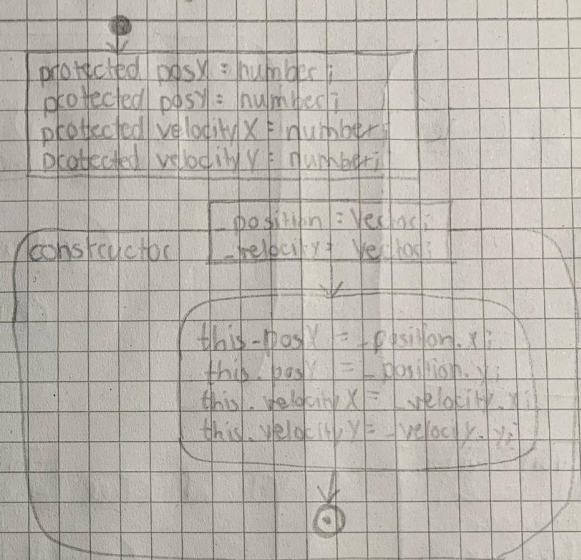 protected posX = number;
protected posY = number;
protected velocityX = number;
protected velocityY = number;
_position = Vector;
constructor
_velocity = Vector;
this.posX = _position.x;
this.posY = _position.y;
this.velocityX = _velocity.x;
this.velocityY = _velociy.y;